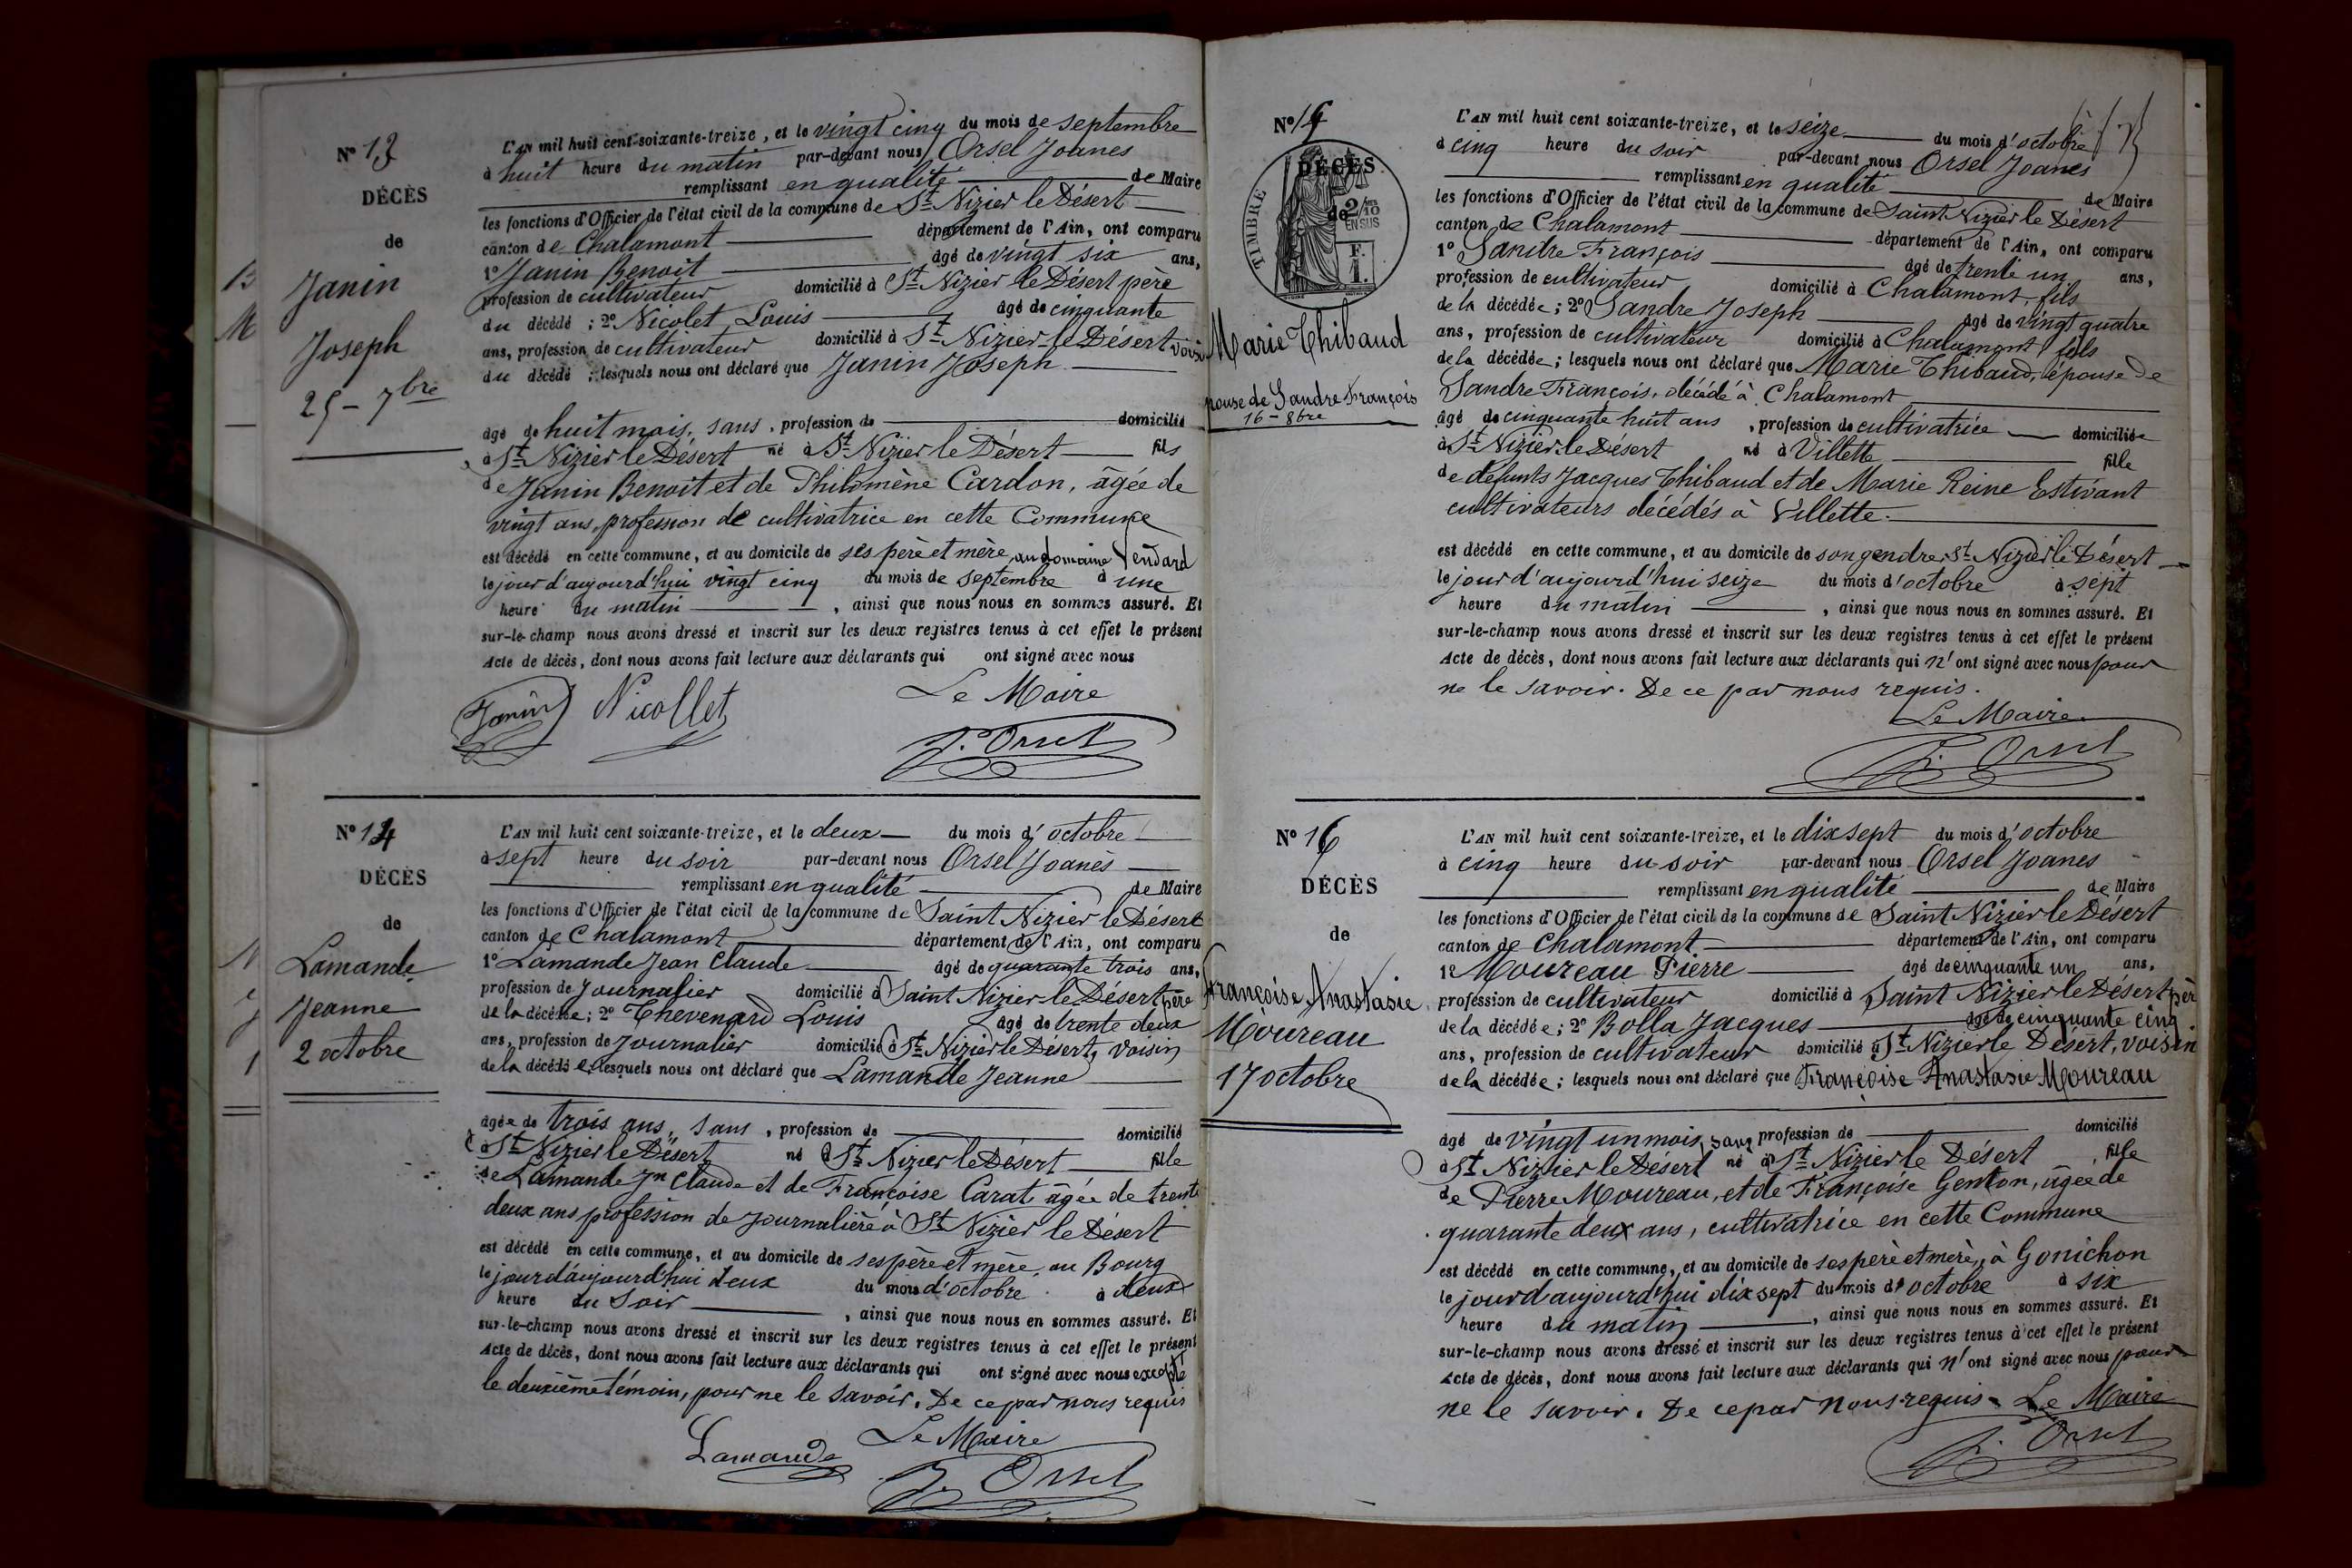 N° 13
DÉCÈS
de
Janin
Joseph
25 - 7bre
L'AN mil huit cent soixante-treize, et le vingt cinq du mois de septembre
à huit heure du matin par-devant nous Orsel Joanès
remplissant en qualité de Maire
les fonctions d'Officier de l'état civil de la commune de St Nizier le Désert
canton de Chalamont département de l'Ain, ont comparu
1° Janin Benoit âgé de vingt six ans,
profession de cultivateur domicilié à St Nizier le Désert père
du décédé ; 2° Nicolet Louis âgé de cinquante
ans, profession de cultivateur domicilié à St Nizier-le-Désert voisin
du décédé ; lesquels nous ont déclaré que Janin Joseph
âgé de huit mois, sans, profession de domicilié
à St Nizier le Désert né à St Nizier le Désert fils
de Janin Benoit et de Philomène Cardon, âgée de
vingt ans, profession de cultivatrice en cette Commune
est décédé en cette commune, et au domicile de ses père et mère, au domaine
le jour d'aujourd'hui vingt cinq du mois de septembre à une
heure du matin , ainsi que nous nous en sommes assuré. Et
sur-le-champ nous avons dressé et inscrit sur les deux registres tenus à cet effet le présent
Acte de décès, dont nous avons fait lecture aux déclarants qui ont signé avec nous
Le Maire
Janin Nicollet
J. Orsel
N° 14
DÉCÈS
de
Lamande
Jeanne
2 octobre
L'AN mil huit cent soixante-treize, et le deux du mois d'octobre
à sept heure du soir par-devant nous Orsel Joanès
remplissant en qualité de Maire
les fonctions d'Officier de l'état civil de la commune de Saint Nizier le Désert
canton de Chalamont département de l'Ain, ont comparu
1° Lamande Jean Claude âgé de quarante trois ans,
profession de Journalier domicilié à Saint Nizier-le-Désert père
de la décédée ; 2° Thevenard Louis âgé de trente deux
ans, profession de Journalier domicilié à St Nizier le Désert, voisin
de la décédée ; lesquels nous ont déclaré que Lamande Jeanne
âgée de trois ans, sans, profession de domicilié
à St Nizier le Désert né à St Nizier le Désert fille
de Lamande Jn Claude et de Françoise Carat âgée de trente
deux ans profession de Journalière à St Nizier le Désert
est décédé en cette commune, et au domicile de ses père et mère, au Bourg
le jour d'aujourd'hui deux du mois d'octobre à deux
heure du Soir , ainsi que nous nous en sommes assuré. Et
sur-le-champ nous avons dressé et inscrit sur les deux registres tenus à cet effet le présent
Acte de décès, dont nous avons fait lecture aux déclarants qui ont signé avec nous excepté
le deuxième témoin, pour ne le savoir. De ce par nous requis
Le Maire
Lamande
J. Orsel
DÉCÈS
de
TIMBRE
2/10
EN SUS
F.
1.
Marie Thibaud
épouse de Sandre François
16 - 8bre
L'AN mil huit cent soixante-treize, et le seize du mois d'octobre
à cinq heure du soir par-devant nous Orsel Joanès
remplissant en qualité de Maire
les fonctions d'Officier de l'état civil de la commune de Saint Nizier le Désert
canton de Chalamont département de l'Ain, ont comparu
1° Sandre François âgé de trente un ans,
profession de cultivateur domicilié à Chalamont, fils
de la décédée ; 2° Sandre Joseph âgé de vingt quatre
ans, profession de cultivateur domicilié à Chalamont, fils
de la décédée ; lesquels nous ont déclaré que Marie Thibaud, épouse de
Sandre François, décédé à Chalamont
âgé de cinquante huit ans, profession de cultivatrice domiciliée
à St Nizier le Désert né à Villette fille
de défunts Jacques Thibaud et de Marie Reine Estivant
cultivateurs décédés à Villette.
est décédé en cette commune, et au domicile de son gendre St Nizier le Désert
le jour d'aujourd'hui seize du mois d'octobre à sept
heure du matin , ainsi que nous nous en sommes assuré. Et
sur-le-champ nous avons dressé et inscrit sur les deux registres tenus à cet effet le présent
Acte de décès, dont nous avons fait lecture aux déclarants qui n'ont signé avec nous pour
ne le savoir. De ce par nous requis.
Le Maire
J. Orsel
N° 16
DÉCÈS
de
Françoise Anastasie
Moureau
17 octobre
L'AN mil huit cent soixante-treize, et le dix sept du mois d'octobre
à cinq heure du soir par-devant nous Orsel Joanès
remplissant en qualité de Maire
les fonctions d'Officier de l'état civil de la commune de Saint Nizier le Désert
canton de Chalamont département de l'Ain, ont comparu
1° Moureau Pierre âgé de cinquante un ans,
profession de cultivateur domicilié à Saint Nizier le Désert père
de la décédée ; 2° Bolla Jacques âgé de cinquante cinq
ans, profession de cultivateur domicilié à St Nizier le Désert, voisin
de la décédée ; lesquels nous ont déclaré que Françoise Anastasie Moureau
âgé de vingt un mois, sans profession de domicilié
à St Nizier le Désert né à St Nizier le Désert fille
de Pierre Moureau, et de Françoise Genton, âgée de
quarante deux ans, cultivatrice en cette Commune
est décédé en cette commune, et au domicile de ses père et mère, à Gonichon
le jour d'aujourd'hui dix sept du mois d'octobre à six
heure du matin , ainsi que nous nous en sommes assuré. Et
sur-le-champ nous avons dressé et inscrit sur les deux registres tenus à cet effet le présent
Acte de décès, dont nous avons fait lecture aux déclarants qui n'ont signé avec nous pour
ne le savoir. De ce par nous requis - Le Maire
J. Orsel